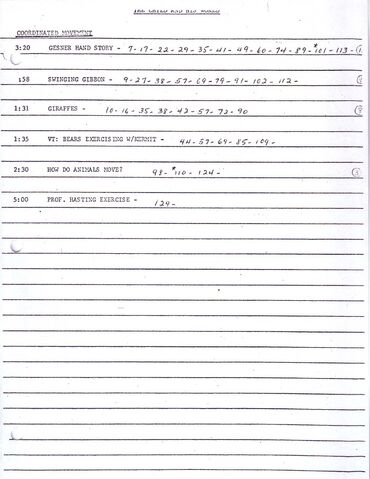 THE CHILD AND HIS WORLD
COORDINATED MOVEMENT
3:20 GESNER HAND STORY - 7-17-22-29-35-41-49-60-74-89-*101-113-
:58 SWINGING GIBBON - 9-27-38-57-69-79-91-102-112-
1:31 GIRAFFES - 10-16-35-38-42-57-72-90
1:35 VT: BEARS EXERCISING W/KERMIT - 44-57-69-85-109-
2:30 HOW DO ANIMALS MOVE? 98-*110-124-
5:00 PROF. HASTING EXERCISE - 124-